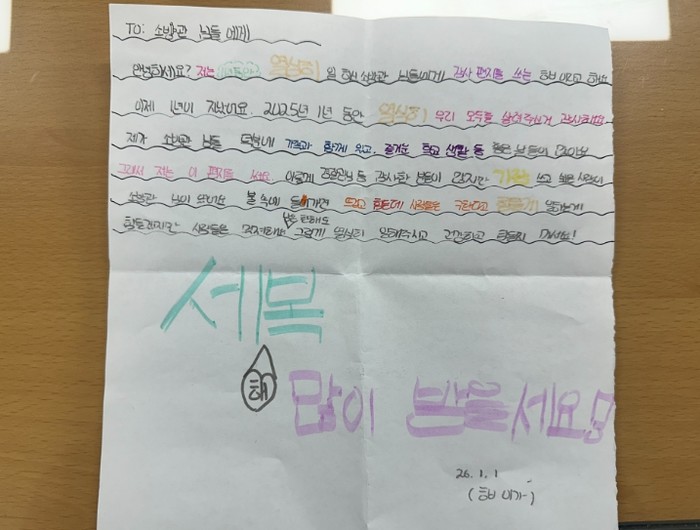 TO: 소방관 님들에게
안녕하세요? 저는 열심히 일 하신 소방관 님들에게 감사 편지를 쓰는 라고 해요
이제 1년이 지났어요. 2025년 1년 동안 열심히 우리 모두를 살려주신거 감사해요.
제가 소방관 님들 덕분에 가족과 함께 있고, 즐거운 학교 생활 등 좋은 날들이 많아요
그래서 저는 이 편지를 써요. 이렇게 경찰관님 등 감사한 분들이 많지만 가장 쓰고 싶은 사람이
소방관 님이 뜨겁고 불 속에 들어가면 뜨겁고 힘든데 사람들을 구하고
힘들겠지만 사람들을 위해서 그렇게 열심히 일해주시고 건강하고 힘들지 마세요!
새복
해
많이 받을세요
26.1.1